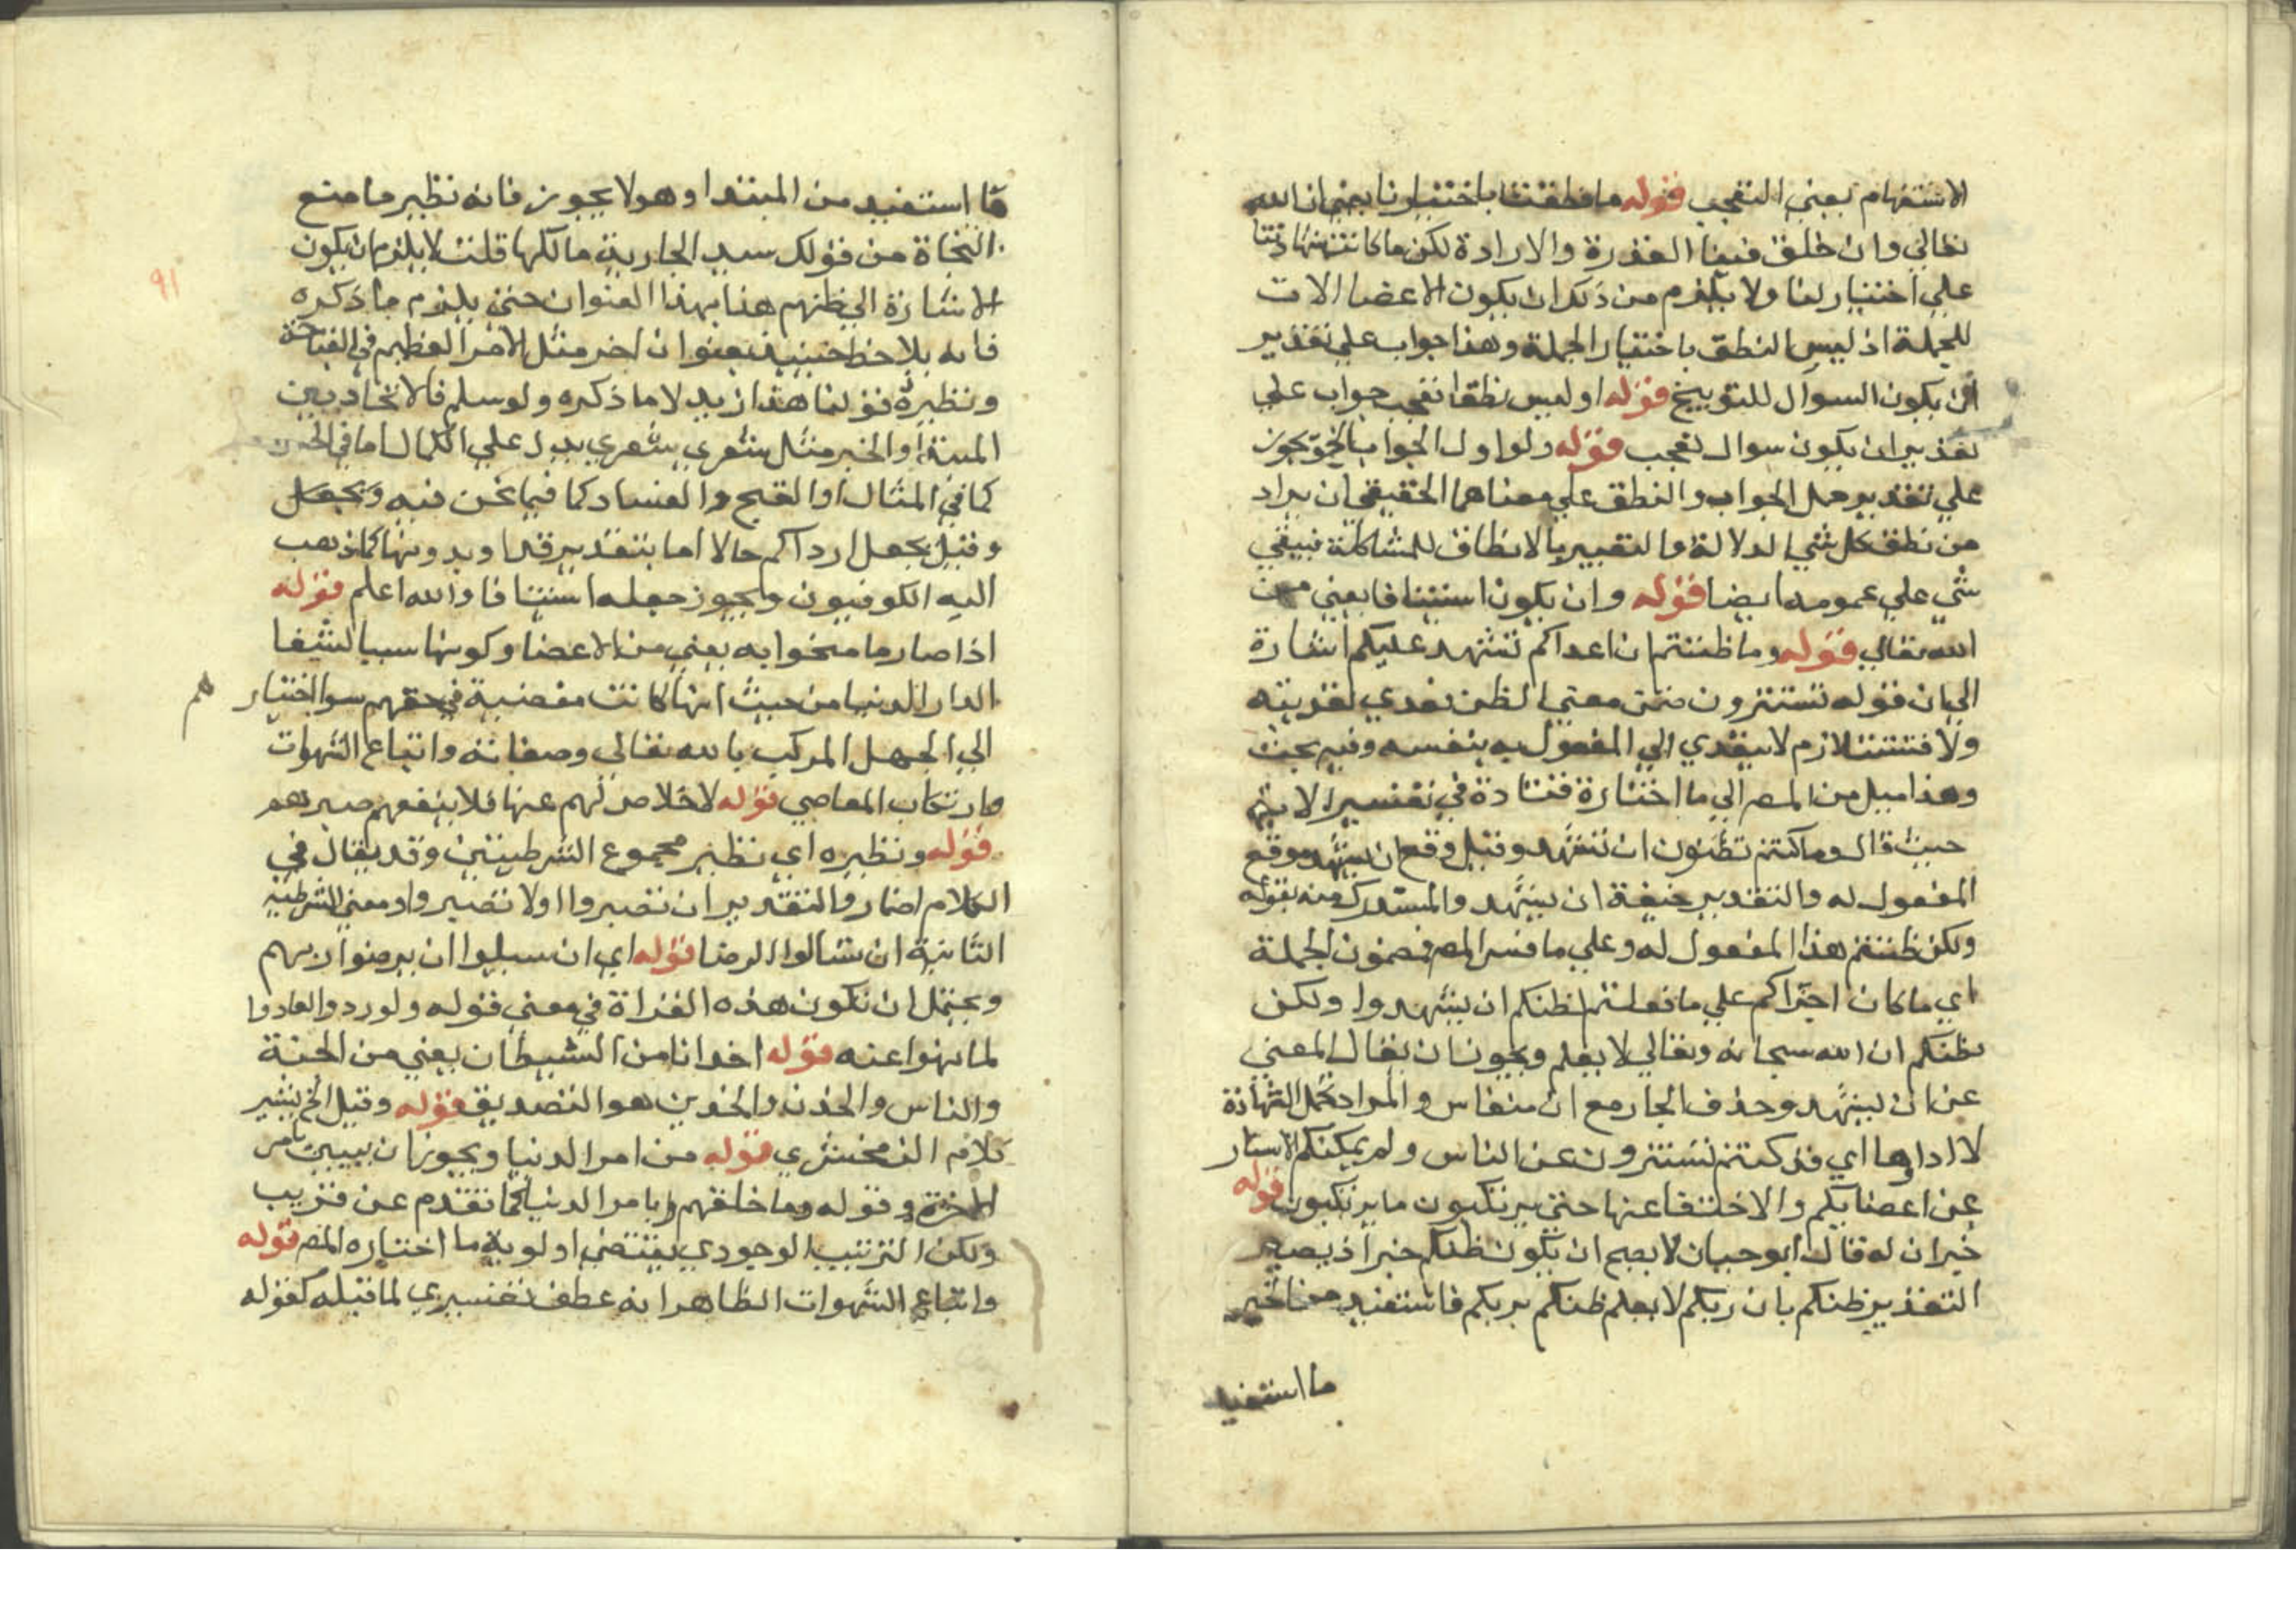 الاستفهام بمعني التعجب قوله ما نطقنا باختيارنا يعني ان الله
تعالي وان خلق فينا القدرة والارادة لكن ما كانت شهادتنا
علي اختيار لنا ولا يلزم من ذلك ان يكون الاعضا الات
للجملة اذ ليس النطق باختيار الجملة وهذا جواب علي تقدير
ان يكون السوال للتوبيخ قوله او ليس نطقنا تعجب جواب علي
تقدير ان يكون سوال تعجب قوله ولو اول الجواب الخ يجوز
علي تقدير حمل الجواب والنطق علي معناهما الحقيقي ان يراد
من نطق كل شي الدلالة والتعبير بالانطاق للمشاكلة فيبقي
شي علي عمومه ايضا قوله وان يكون استئنافا يعني من
الله تعالي قوله وما ظننتم ان اعداكم تشهد عليكم اشارة
الي ان قوله تستترون ضمن معني الظن فعدي تعديته
ولا فتستتر لازم لا يتعدي الي المفعول به بنفسه وفيه بحث
وهذا ميل من المص الي ما اختاره قتادة في تفسير الاية
حيث قال وما كنتم تظنون ان تشهد وقيل وقع ان يشهد موقع
المفعول له والتقدير خيفة ان يشهد والمستدرك منه بقوله
ولكن ظننتم هذا المفعول له وعلي ما فسر المص مضمون الجملة
اي ما كان اجتراكم علي ما فعلتم لظنكم ان يشهدوا ولكن
لظنكم ان الله سبحانه وتعالي لا يعلم ويجوز ان يقال المعني
عن ان يشهد وحذف الجار مع ان منقاس والمراد تحمل الشهادة
لا اداوها اي قد كنتم تستترون عن الناس ولم يمكنكم الاستتار
عن اعضايكم والاختفا عنها حتي يرتكبون ما يرتكبون قوله
خبران له قال ابو حيان لا يصح ان يكون ظنكم خبرا اذ يصير
التقدير ظنكم بان ربكم لا يعلم ظنكم بربكم فاستفيد من الخبر
ما استفيد
ما استفيد من المبتدا وهو لا يجوز فانه نظير ما منع
النحاة من قولك سيد الجارية مالكها قلت لا يلزم ان يكون
الاشارة الي ظنهم هنا بهذا العنوان حتي يلزم ما ذكره
فانه يلاحظ حينيذ بعنوان اخر مثل الامر العظيم في القباحة
ونظيره قولنا هذا زيد لا ما ذكره ولو سلم فالاتحاد بين
المبتدا والخبر مثل شعري شعري يدل علي الكمال اما في الحسن
كما في المثال او القبح والفساد كما فيما نحن فيه ويجعل
وقيل يجعل ارداكم حالا اما بتقدير قد او بدونها كما ذهب
اليه الكوفيون ويجوز جعله استئنافا والله اعلم قوله
اذا صار ما منحوا به يعني من الاعضا وكونها سببا لشقا
الدار الدنيا من حيث انها كانت مفضية في حقهم سوا اختيار هم
الي الجهل المركب بالله تعالي وصفاته واتباع الشهوات
وارتكاب المعاصي قوله لا خلاص لهم عنها فلا ينفعهم صبرهم
قوله ونظيره اي نظير مجموع الشرطيتين وقد يقال في
الكلام اضمار والتقدير ان تصبروا او لا تصبروا ومعني الشرطية
الثانية ان تسالوا الرضا قوله اي ان سيلوا ان يرضوا ربهم
ويحتمل ان تكون هذه القراة في معني قوله ولو ردوا لعادوا
لما نهوا عنه قوله اخدانا من الشيطان يعني من الجنة
والناس والخدن والخدين هو الصديق قوله وقيل الخ يشير
كلام الزمخشري قوله من امر الدنيا ويجوز ان بين بامر
الاخرة وقوله وما خلفهم بامر الدنيا كما تقدم عن قريب
ولكن الترتيب الوجودي يقتضي اولوية ما اختاره المص قوله
واتباع الشهوات الظاهر انه عطف تفسيري لما قبله كقوله
٩١